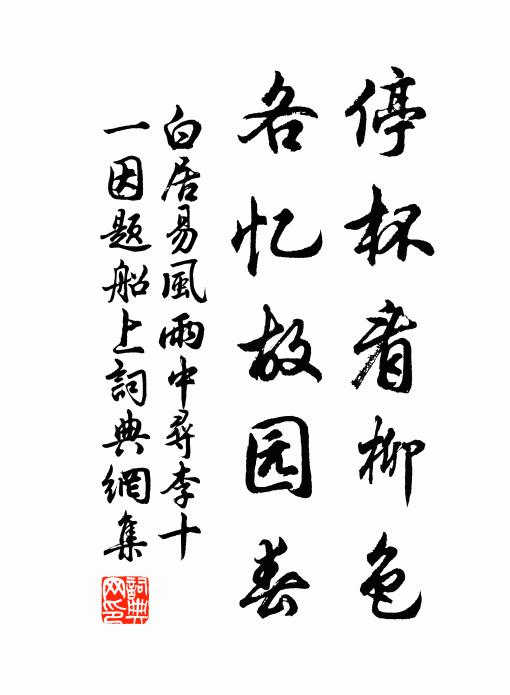 停杯看柳色
各忆故园春
白居易風雨中尋李十
一因题船上詞典網集
詞典网印